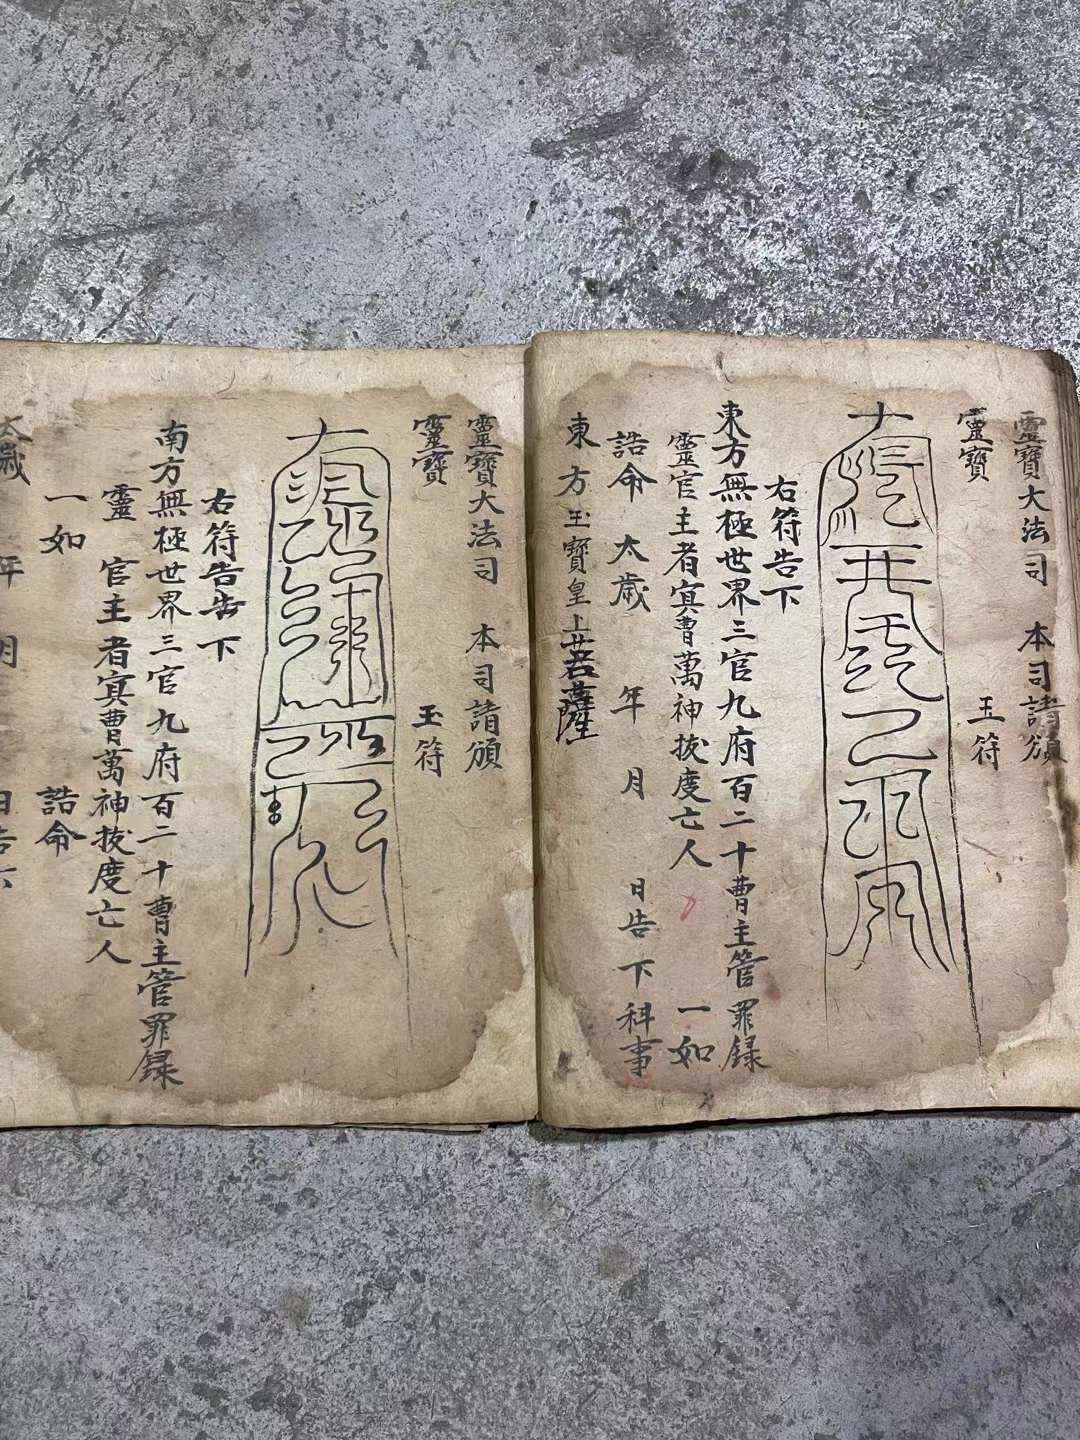 靈寶大法司 本司請頒
靈寶 玉符
右符告下
東方無極世界三官九府百二十曹主管罪録
靈官主者冥曹萬神拔度亡人 一如
誥命太歲 年 月 日告下 科事
東方玉寶皇上菩薩
靈寶大法司 本司請頒
靈寶 玉符
右符告告下
南方無極世界三官九府百二十曹主管罪録
靈 官主者冥曹萬神拔度亡人
一如 誥命
太歲 年 月 日告下